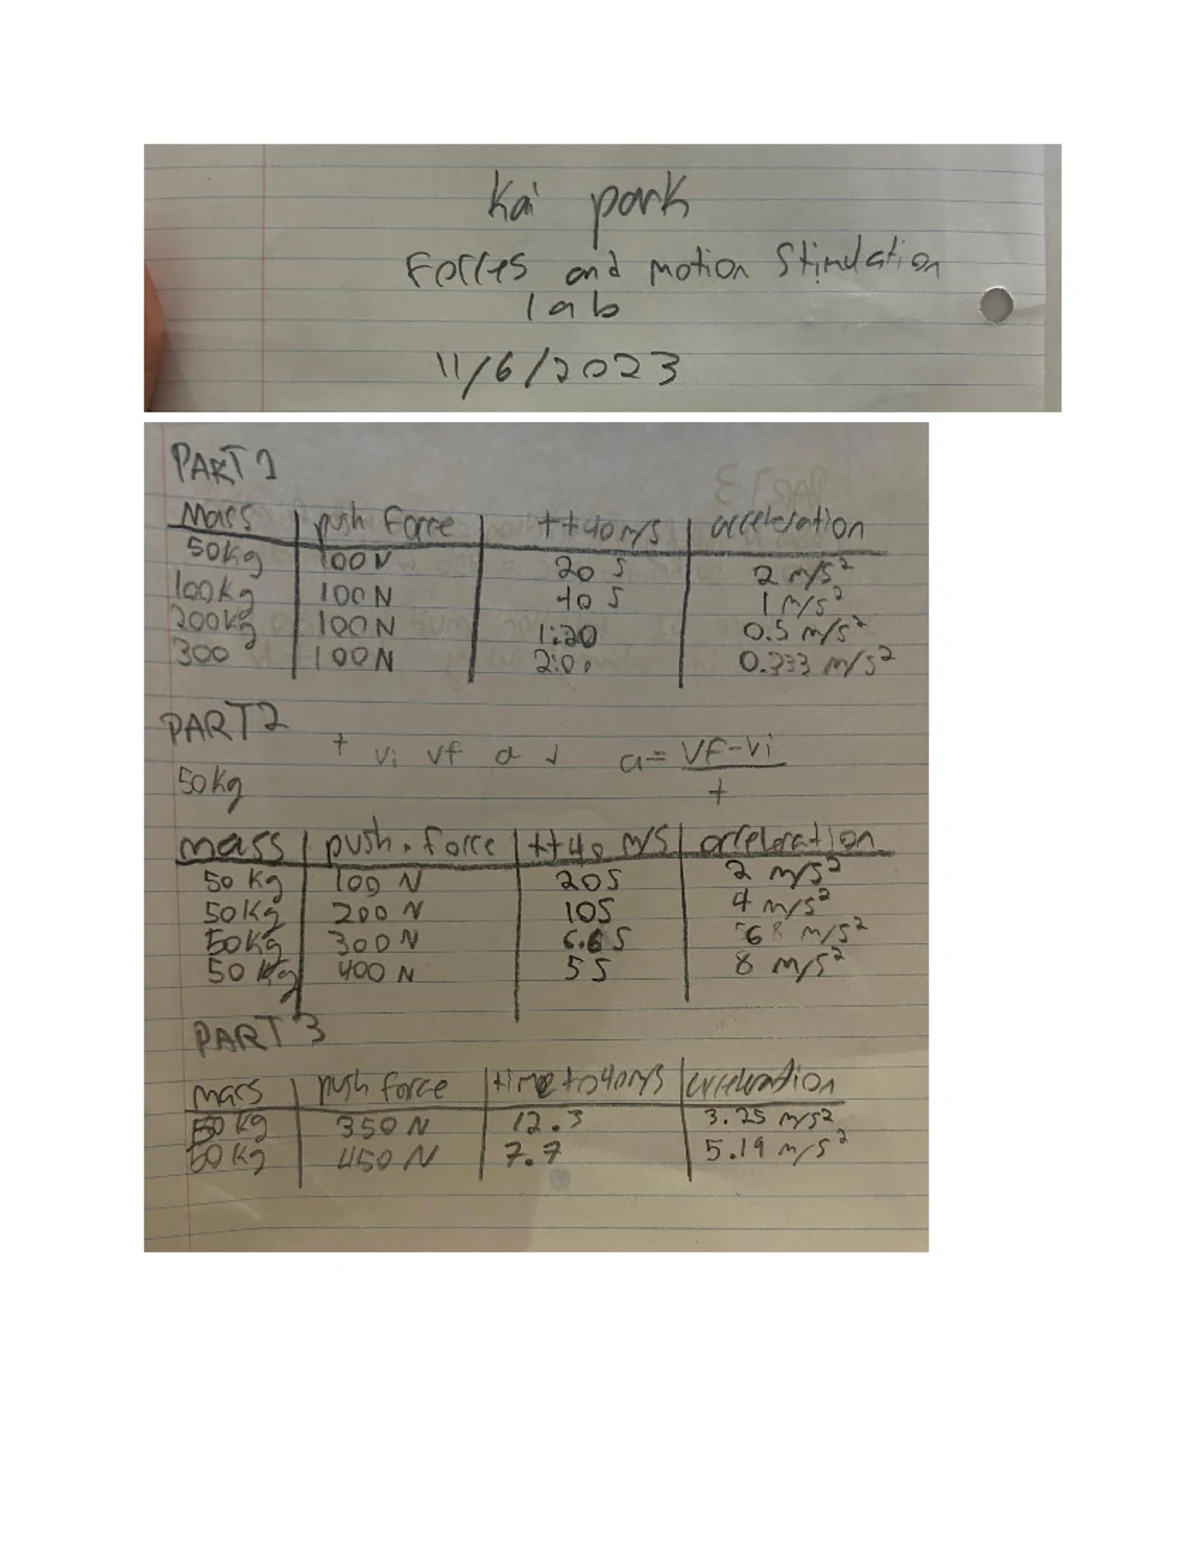 Kai park
Forces and motion Stimulation
lab
11/6/2023
PART 1
Mass | push force | tt40 m/s | acceleration
50kg | 100N | 20 S | 2 m/s²
100kg | 100N | 40 S | 1 m/s²
200kg | 100N | 1:20 | 0.5 m/s²
300 | 100N | 2:00 | 0.333 m/s²
PART 2
t vi vf a d a = VF-Vi
50kg t
mass | push force | tt40 m/s | acceleration
50 kg | 100 N | 20S | 2 m/s²
50kg | 200 N | 10S | 4 m/s²
50kg | 300 N | 6.6S | m/s²
50 kg | 400 N | 5S | 8 m/s²
PART 3
mass | push force | time to 40m/s | acceleration
50 kg | 350 N | 12.3 | 3.25 m/s²
50kg | 450 N | 7.7 | 5.19 m/s²